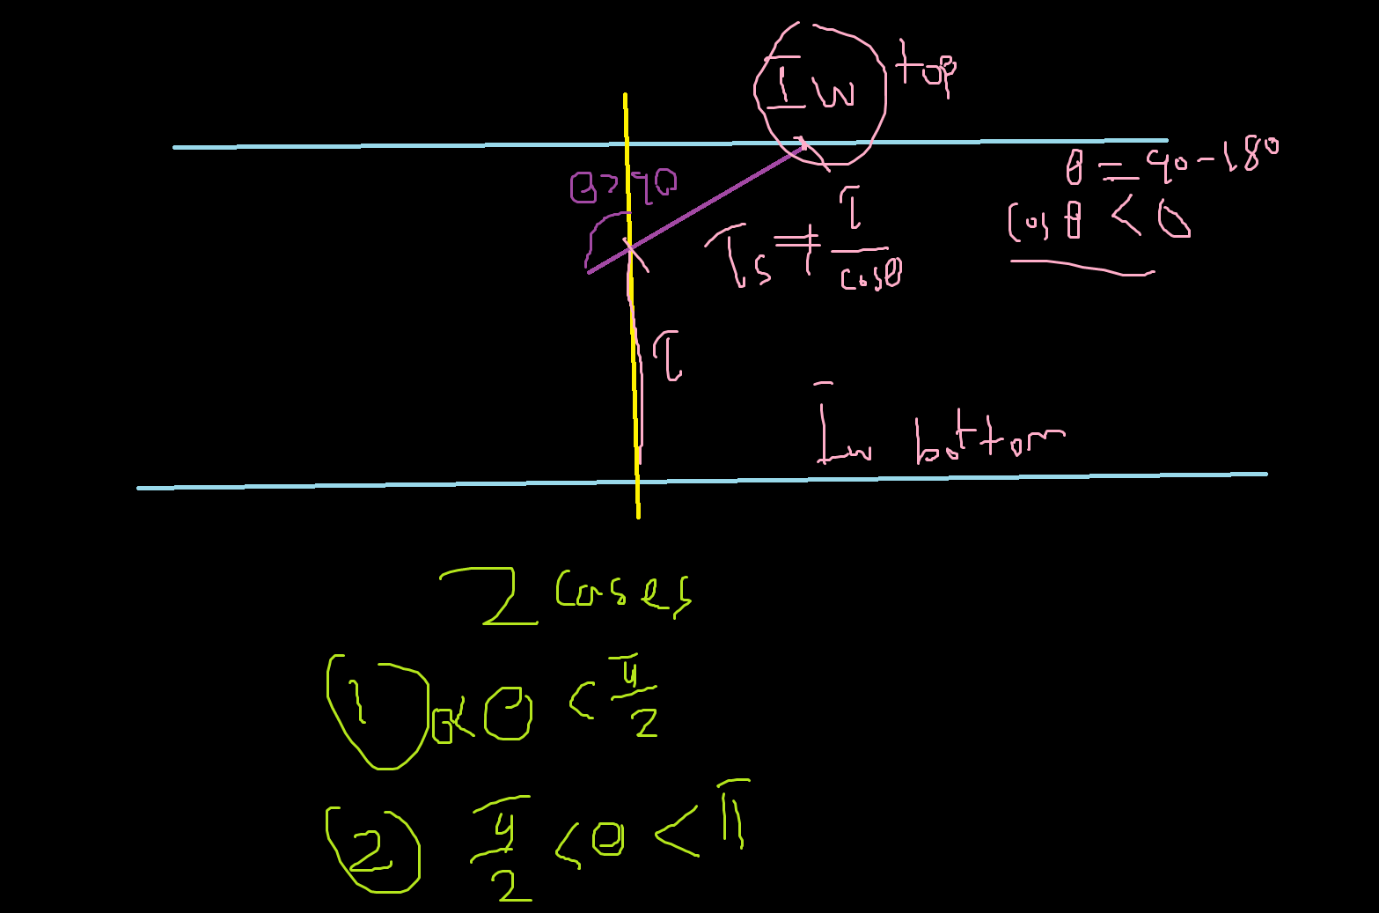 Iw top
θ = 90-180
θ>90
cos θ < 0
τs ≠ τ/cosθ
τ
Iw bottom
2 cases
① 0<θ < π/2
② π/2 < θ < π